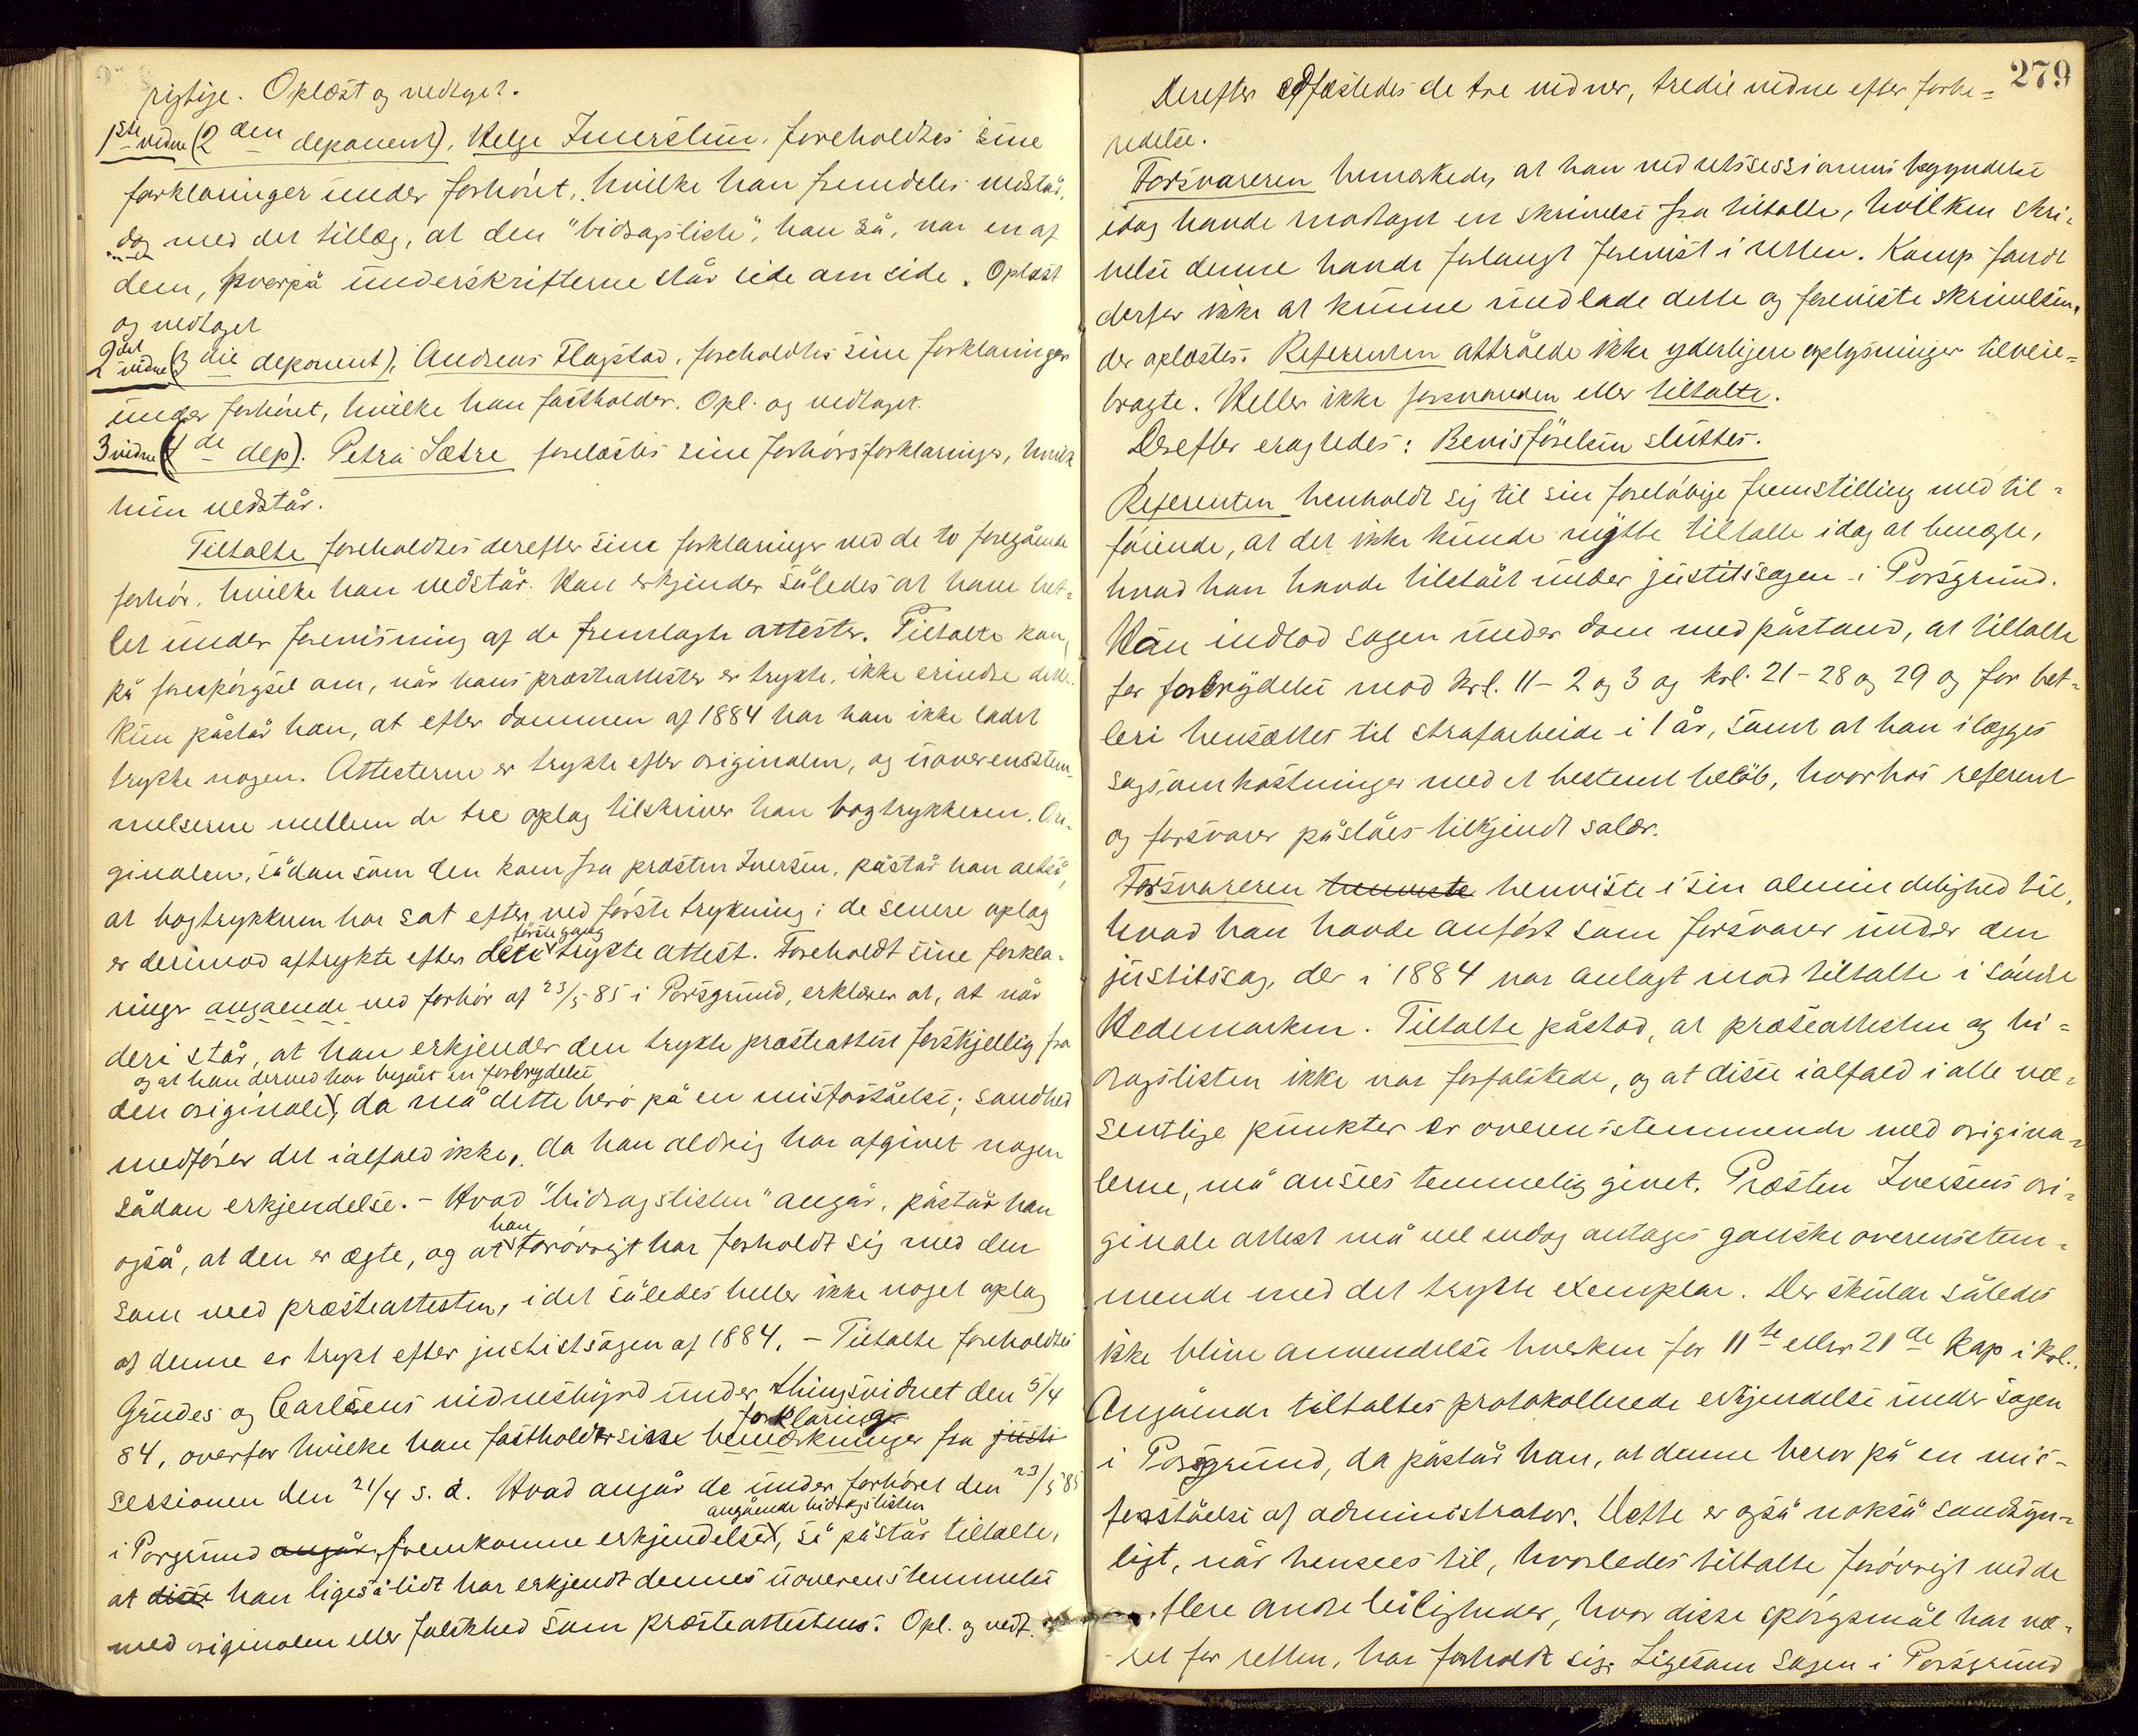 rigtige. Oplæst og vedtaget.
1ste vidne (2den deponent), Helge Imerslun, foreholdtes sine
forklaringer under forhöret, hvilke han fremdeles vedstår,
dog med det tillæg, at den "bidragsliste", han så, var en af
dem, hvorpå underskrifterne står side om side. Oplæst
og vedtaget
2det vidne (3die deponent), Andreas Flagstad, foreholdtes sine forklaringer
under forhöret, hvilke han fastholder. Opl. og vedtaget.
3 vidne (4de dep). Petra Sætre forelæstes sine forhörsforklaringer, hvilke
hun vedstår.
Tiltalte foreholdtes derefter sine forklaringer ved de to foregående
forhör, hvilke han vedstår. Han erkjender således at have bet-
let under forevisning af de fremlagte attester. Tiltalte kan,
på forespörgsel om, når hans præsteattester er trykte, ikke erindre dette.
Kun påstår han, at efter dommen af 1884 har han ikke ladet
trykke nogen. Attesterne er trykte efter originalen, og uoverensstem-
melserne mellem de tre oplag tilskriver han bogtrykkeren. Ori-
ginalen, sådan som den kom fra præsten Iversen, påstår han altså,
at bogtrykkeren har sat efter ved förste trykning; de senere oplag
er derimod aftrykte efter den förstegang trykte attest. Foreholdt sine forkla-
ringer angaaende ved forhör af 23/5 85 i Porsgrund, erklærer at, at når
deri står, at han erkjender den trykte præsteattest forskjellig fra
og at han derved har begået en forbrydelse
den originale, da må dette bero på en misforståelse; sandhed
medförer det ialfald ikke, da han aldrig har afgivet nogen
sådan erkjendelse. - Hvad "bidragslisten" angår, påstår han
også, at den er ægte, og at han forövrigt har forholdt sig med den
som med præsteattesten, idet således heller ikke noget oplag
af denne er trykt efter justistsagen af 1884. - Tiltalte foreholdtes
Grudes og Carlsens vidnesbyrd under thingsvidnet den 5/4
84, overfor hvilke han fastholder sine forklaringer fra justi
sessionen den 21/4 s. d. Hvad angår de under forhöret den 23/5 85
i Porgrund angår, fremkomne erkjendelser angående bidragslisten, så påstår tiltalte,
at disse han ligeså lidt har erkjendt dennes uoverensstemmelse
med originalen eller falskhed som præsteattestens. Opl. og vedt.
279
Derefter edfæstedes de tre vidner, tredie vidne efter forbe=
redelse.
Forsvareren bemærkede, at han ved retssessionens begyndelse
idag havde modtaget en skrivelse fra tiltalte, hvilken skri-
velse denne havde forlangt forevist i retten. Komp. fandt
derfor ikke at kunne undlade dette og foreviste skrivelsen,
der oplæstes. Referenten attråede ikke yderligere oplysninger tilveie=
bragte. Heller ikke forsvareren eller tiltalte.
Derefter eragtedes: Bevisförelsen sluttes.
Referenten henholdt sig til sin forelöbige fremstilling med til=
föiende, at det ikke kunde nytte tiltalte idag at benægte,
hvad han havde tilstået under justitssagen i Porsgrund.
Han indlod sagen under dom med påstand, at tiltalte
for forbrydelse mod krl. 11-2 og 3 og krl. 21-28 og 29 og for bet-
leri hensættes til strafarbeide i 1 år, samt at han ilægges
sagsomkostninger med et bestemt belöb, hvorhos referent
og forsvarer påståes tilkjendt salær.
Forsvareren henviste henviste i sin almindelighed til,
hvad han havde anfört som forsvarer under den
justitssag, der i 1884 var anlagt mod tiltalte i söndre
Hedemarken. Tiltalte påstod, at præsteattesten og bi=
dragslisten ikke var forfalskede, og at disse ialfald i alle væ=
sentlige punkter er overensstemmende med origina=
lerne, må ansees temmelig givet. Præsten Iversens ori-
ginale attest må vel endog antages ganske overensstem-
mende med det trykte exemplar. Der skulde således
ikke blive anvendelse hverken for 11te eller 21de kap i krl.
Angående tiltaltes protokollerede erkjendelse under sagen
i Porsgrund, da påstår han, at denne beror på en mis-
forståelse af administrator. Dette er også nokså sandsyn-
ligt, når hensees til, hvorledes tiltalte forövrigt ved de
flere andre leiligheder, hvor disse spörgsmål har væ-
ret for retten, har forholdt sig. Ligesom sagen i Porsgrund